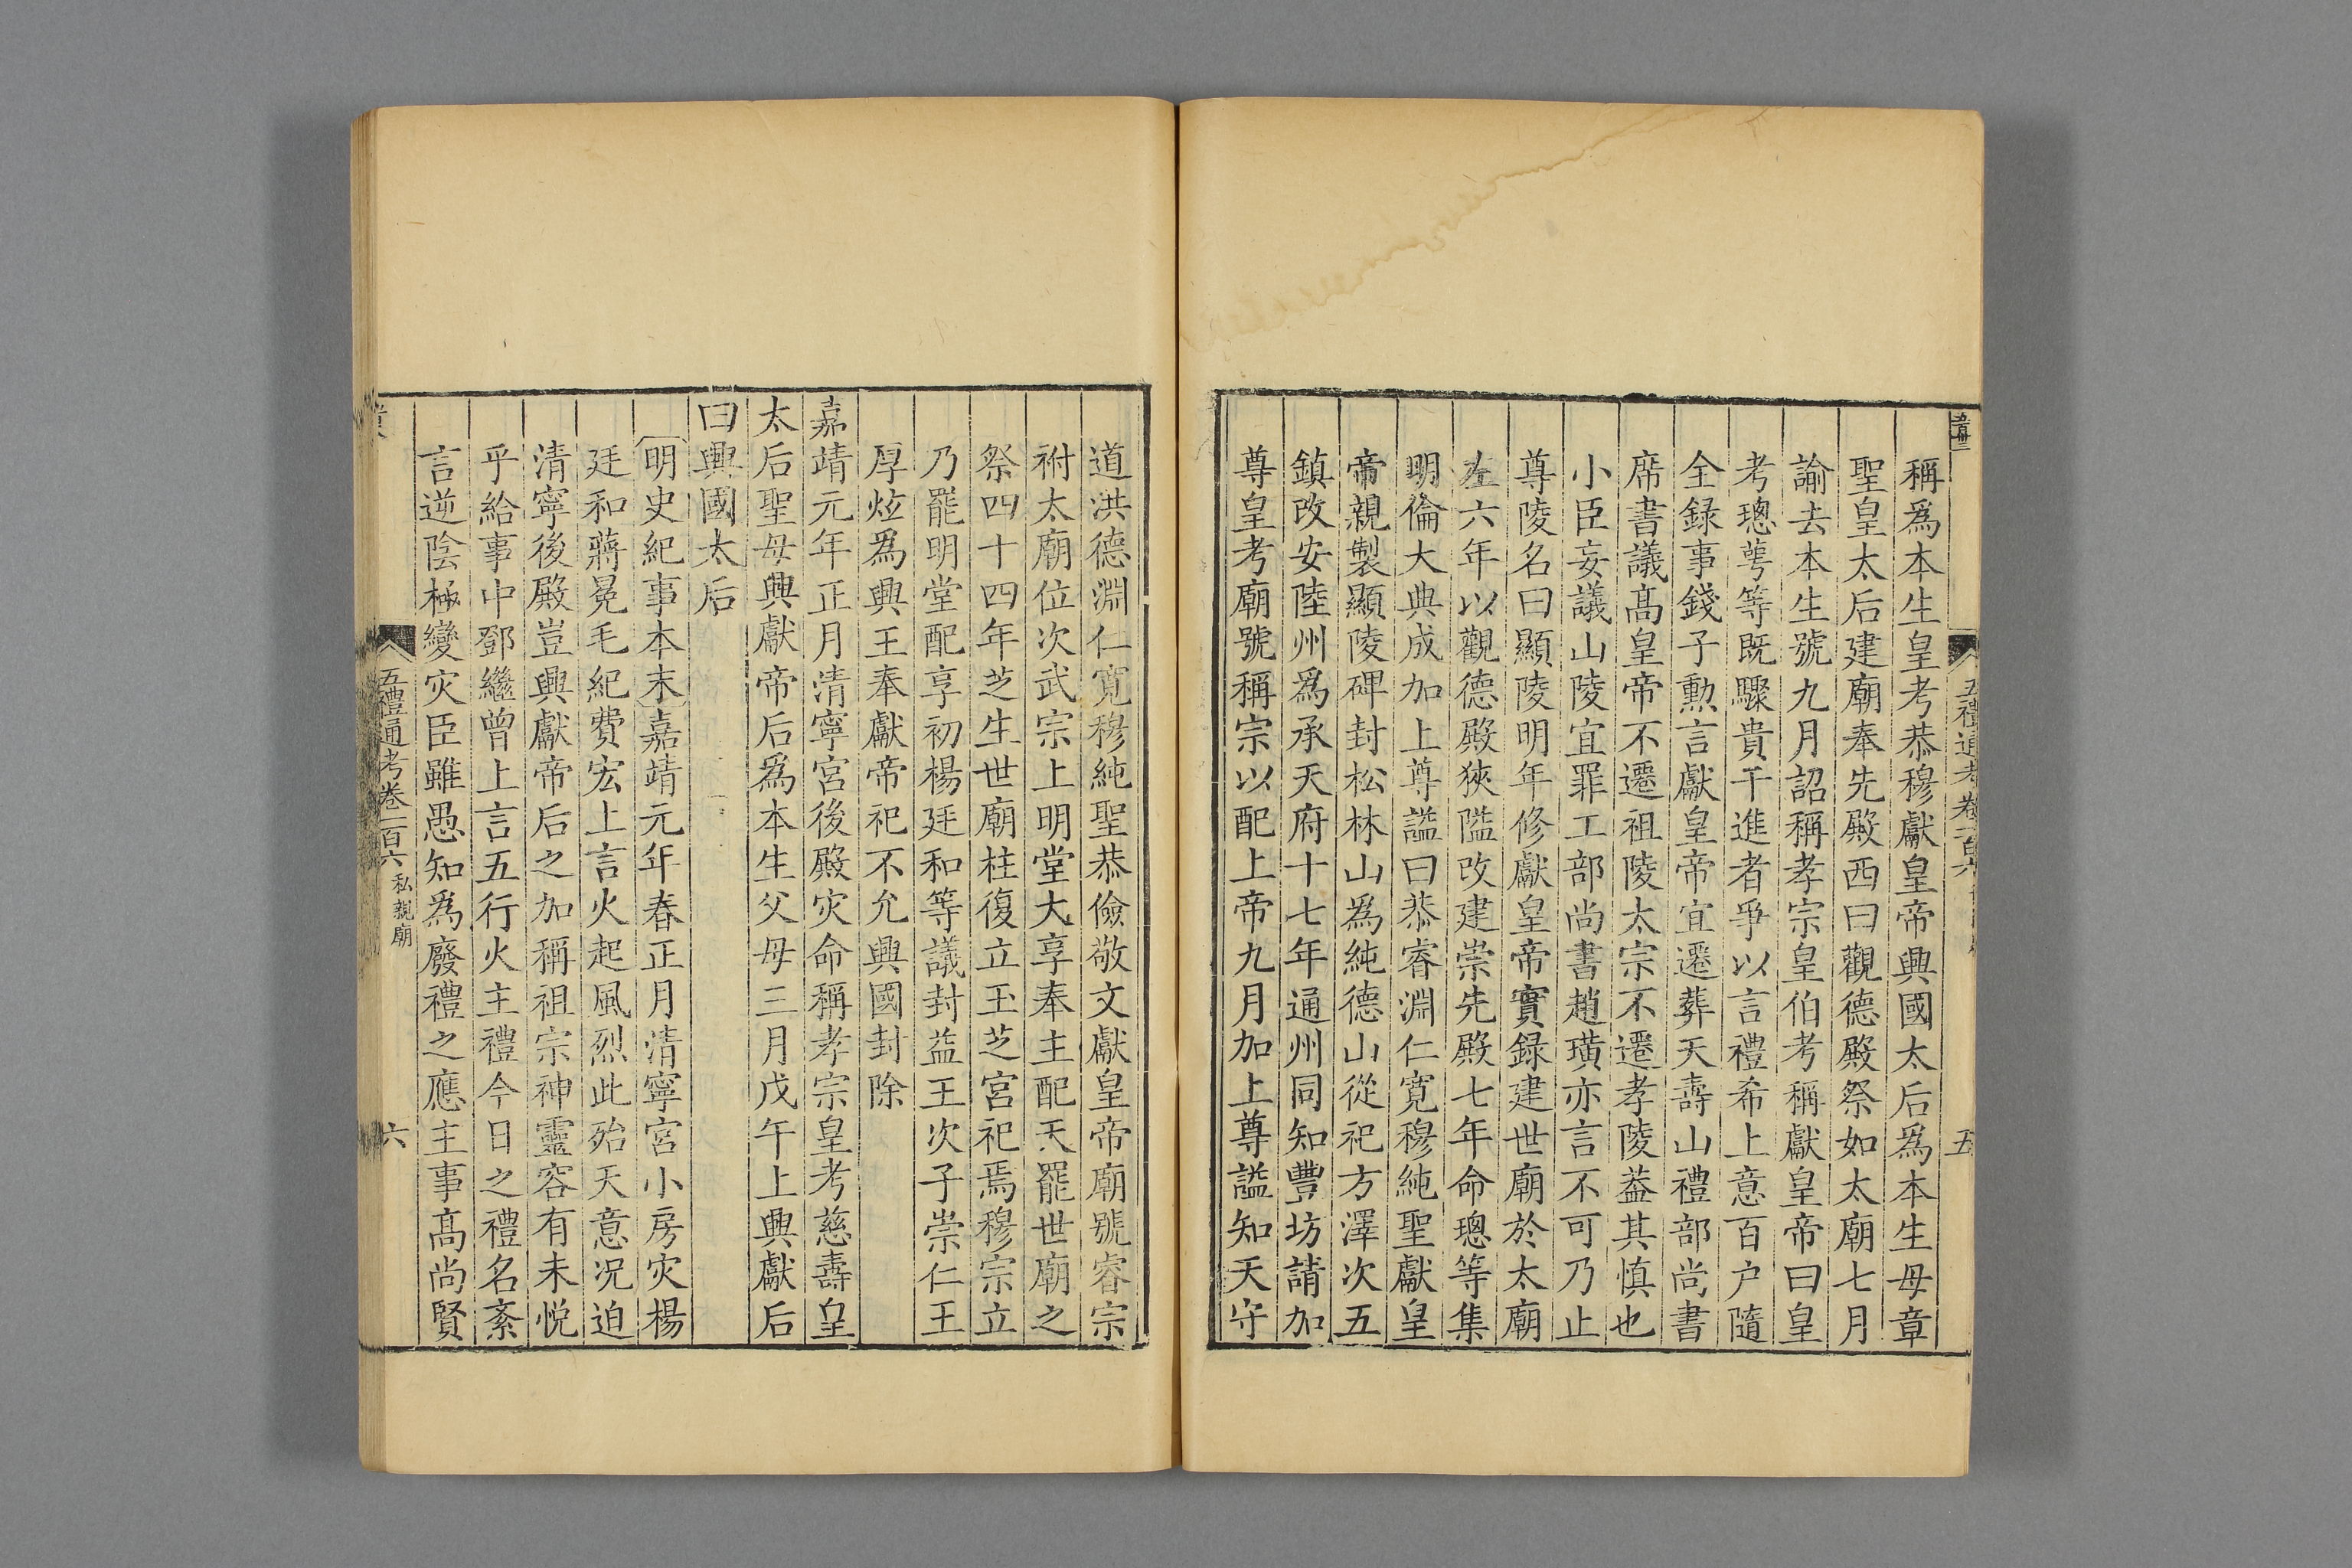 五禮通考卷一百六
五
稱爲本生皇考恭穆獻皇帝興國太后爲本生母章
聖皇太后建廟奉先殿西曰觀德殿祭如太廟七月
諭去本生號九月詔稱孝宗皇伯考稱獻皇帝曰皇
考璁萼等既驟貴干進者爭以言禮希上意百户隨
全録事錢子勳言獻皇帝宜遷葬天壽山禮部尚書
席書議髙皇帝不遷祖陵太宗不遷孝陵葢其慎也
小臣妄議山陵宜罪工部尚書趙璜亦言不可乃止
尊陵名曰顯陵明年修獻皇帝實録建世廟於太廟
左六年以觀德殿狹隘改建崇先殿七年命璁等集
明倫大典成加上尊謚曰恭睿淵仁寛穆純聖獻皇
帝親製顯陵碑封松林山爲純德山從祀方澤次五
鎮改安陸州爲承天府十七年通州同知豐坊請加
尊皇考廟號稱宗以配上帝九月加上尊謚知天守
道洪德淵仁寛穆純聖恭儉敬文獻皇帝廟號睿宗
祔太廟位次武宗上明堂大享奉主配天罷世廟之
祭四十四年芝生世廟柱復立玉芝宮祀焉穆宗立
乃罷明堂配享初楊廷和等議封益王次子崇仁王
厚炫爲興王奉獻帝祀不允興國封除
嘉靖元年正月清寧宮後殿灾命稱孝宗皇考慈壽皇
太后聖母興獻帝后爲本生父母三月戊午上興獻后
曰興國太后
明史紀事本末嘉靖元年春正月清寧宮小房灾楊
廷和蔣冕毛紀費宏上言火起風烈此殆天意况迫
清寧後殿豈興獻帝后之加稱祖宗神靈容有未悦
乎給事中鄧繼曾上言五行火主禮今日之禮名紊
言逆陰極變灾臣雖愚知爲廢禮之應主事髙尚賢
五禮通考卷一百六 私親廟
六